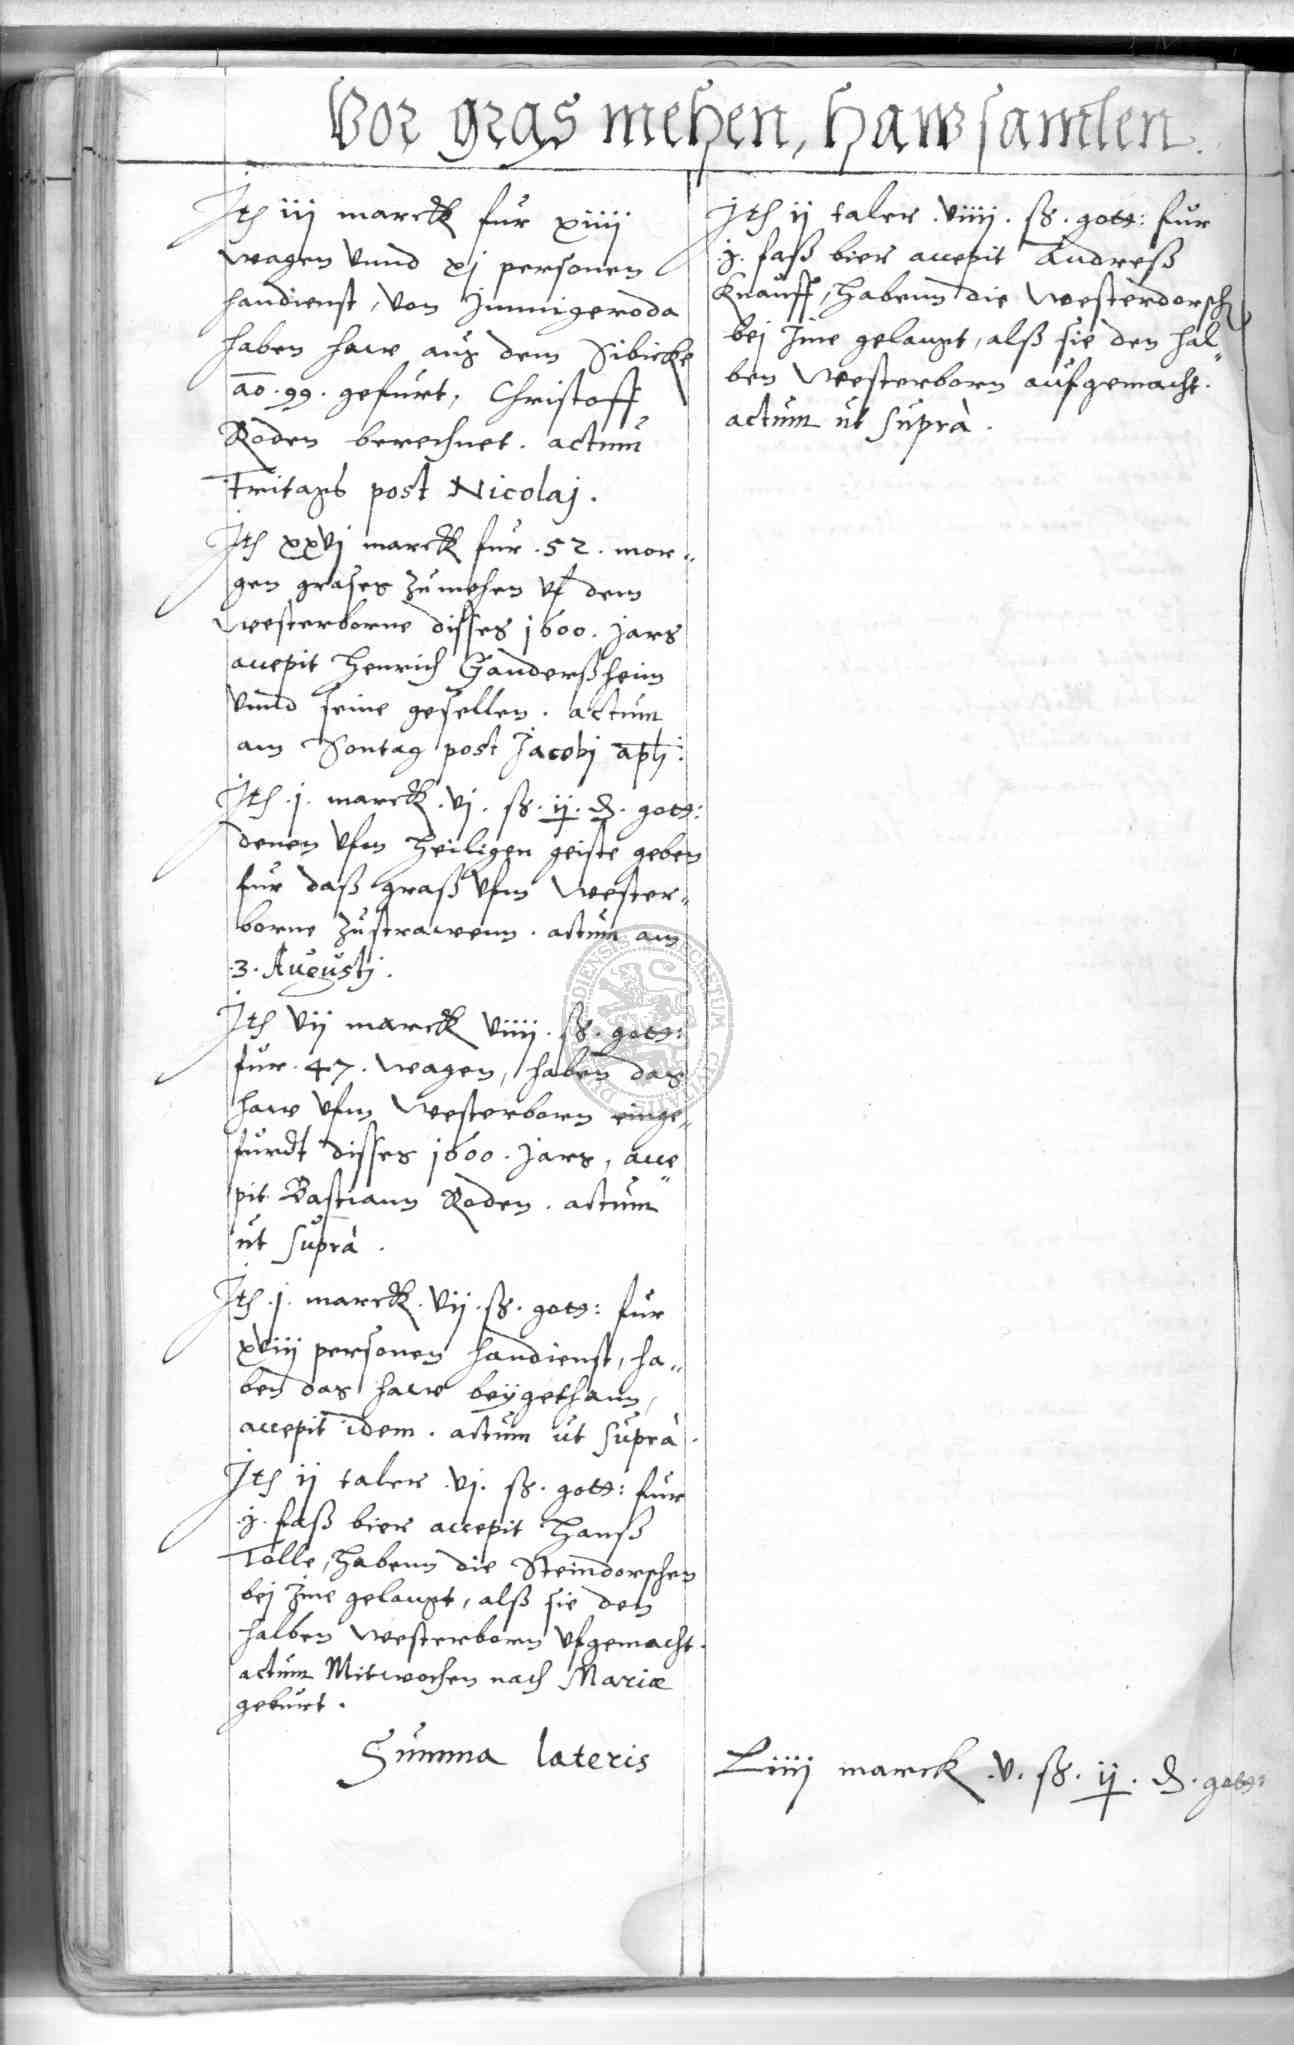 Vor gras mehen, haw samlen.
Ith iij marck fur xiiij
wagen vnnd xj personen
handienst, von Immigeroda
haben haw aus dem Sibicke
ao. 99. gefürt, Christoff
Roden berechnet. actum
Fritags post Nicolaj.
Ith xxvj marck fur .52. mor„
gen grases zumehen vf dem
Westerborne disses 1600. jars
accepit Henrich Ganderßheim
vnnd seine gesellen. actum
am Sontag post Jacobj apli:
Ith .j. marck .vj. ß. ij. ₰. gott:
denen vfm heiligen geiste geben
fur daß graß vfm Wester„
borne zustrawenn. actum am
.3. Augustj.
Ith vij marck viiij. ß. gott:
fur .47. wagen, haben das
haw vfm Westerborn einge„
furdt disses 1600. jars, acce„
pit Bastiann Roden. actum
ut suprà.
Ith .j. marck .vij. ß. gott: fur
xviij personen handienst, ha„
ben das haw beÿgethann,
accepit idem. actum ut suprà.
Ith ij taler .vj. ß. gott: fur
.j. faß bier accepit Hanß
Tolle, habenn die Steindorschen
bej Ime gelangt, alß sie den
halben Westerborn vfgemacht.
actum Mitwochen nach Mariæ
geburt.
Ith ij taler .viiij. ß. gott: fur
j. faß bier accepit Andreß
Knauff, habenn die Westerdorsch
bej Ime gelangt, alß sie den hal„
ben Westerborn aufgemacht.
actum ut suprà.
Summa lateris
Liiij marck .v. ß. ij. ₰. gott: